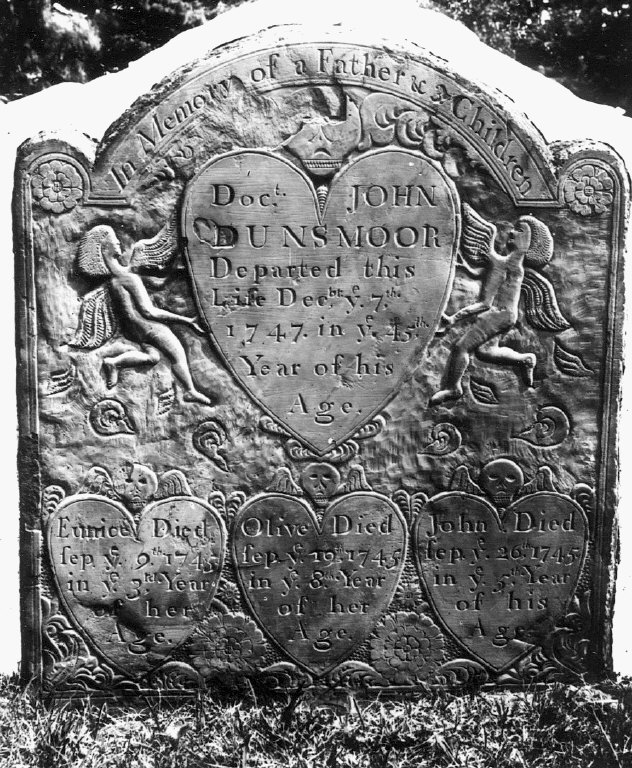 In Memory of a Father & 3 Children
Doct. JOHN
DUNSMOOR
Departed this
Life Decbr. ye. 7.th
1747. in ye. 45.th
Year of his
Age.
Eunice Died
sep. ye. 9th. 1745
in ye. 3rd. Year
of her
Age.
Olive Died
sep. ye. 19th. 1745
in ye. 8th. Year
of her
Age.
John Died
sep. ye. 26th. 1745
in ye. 5th. Year
of his
Age.